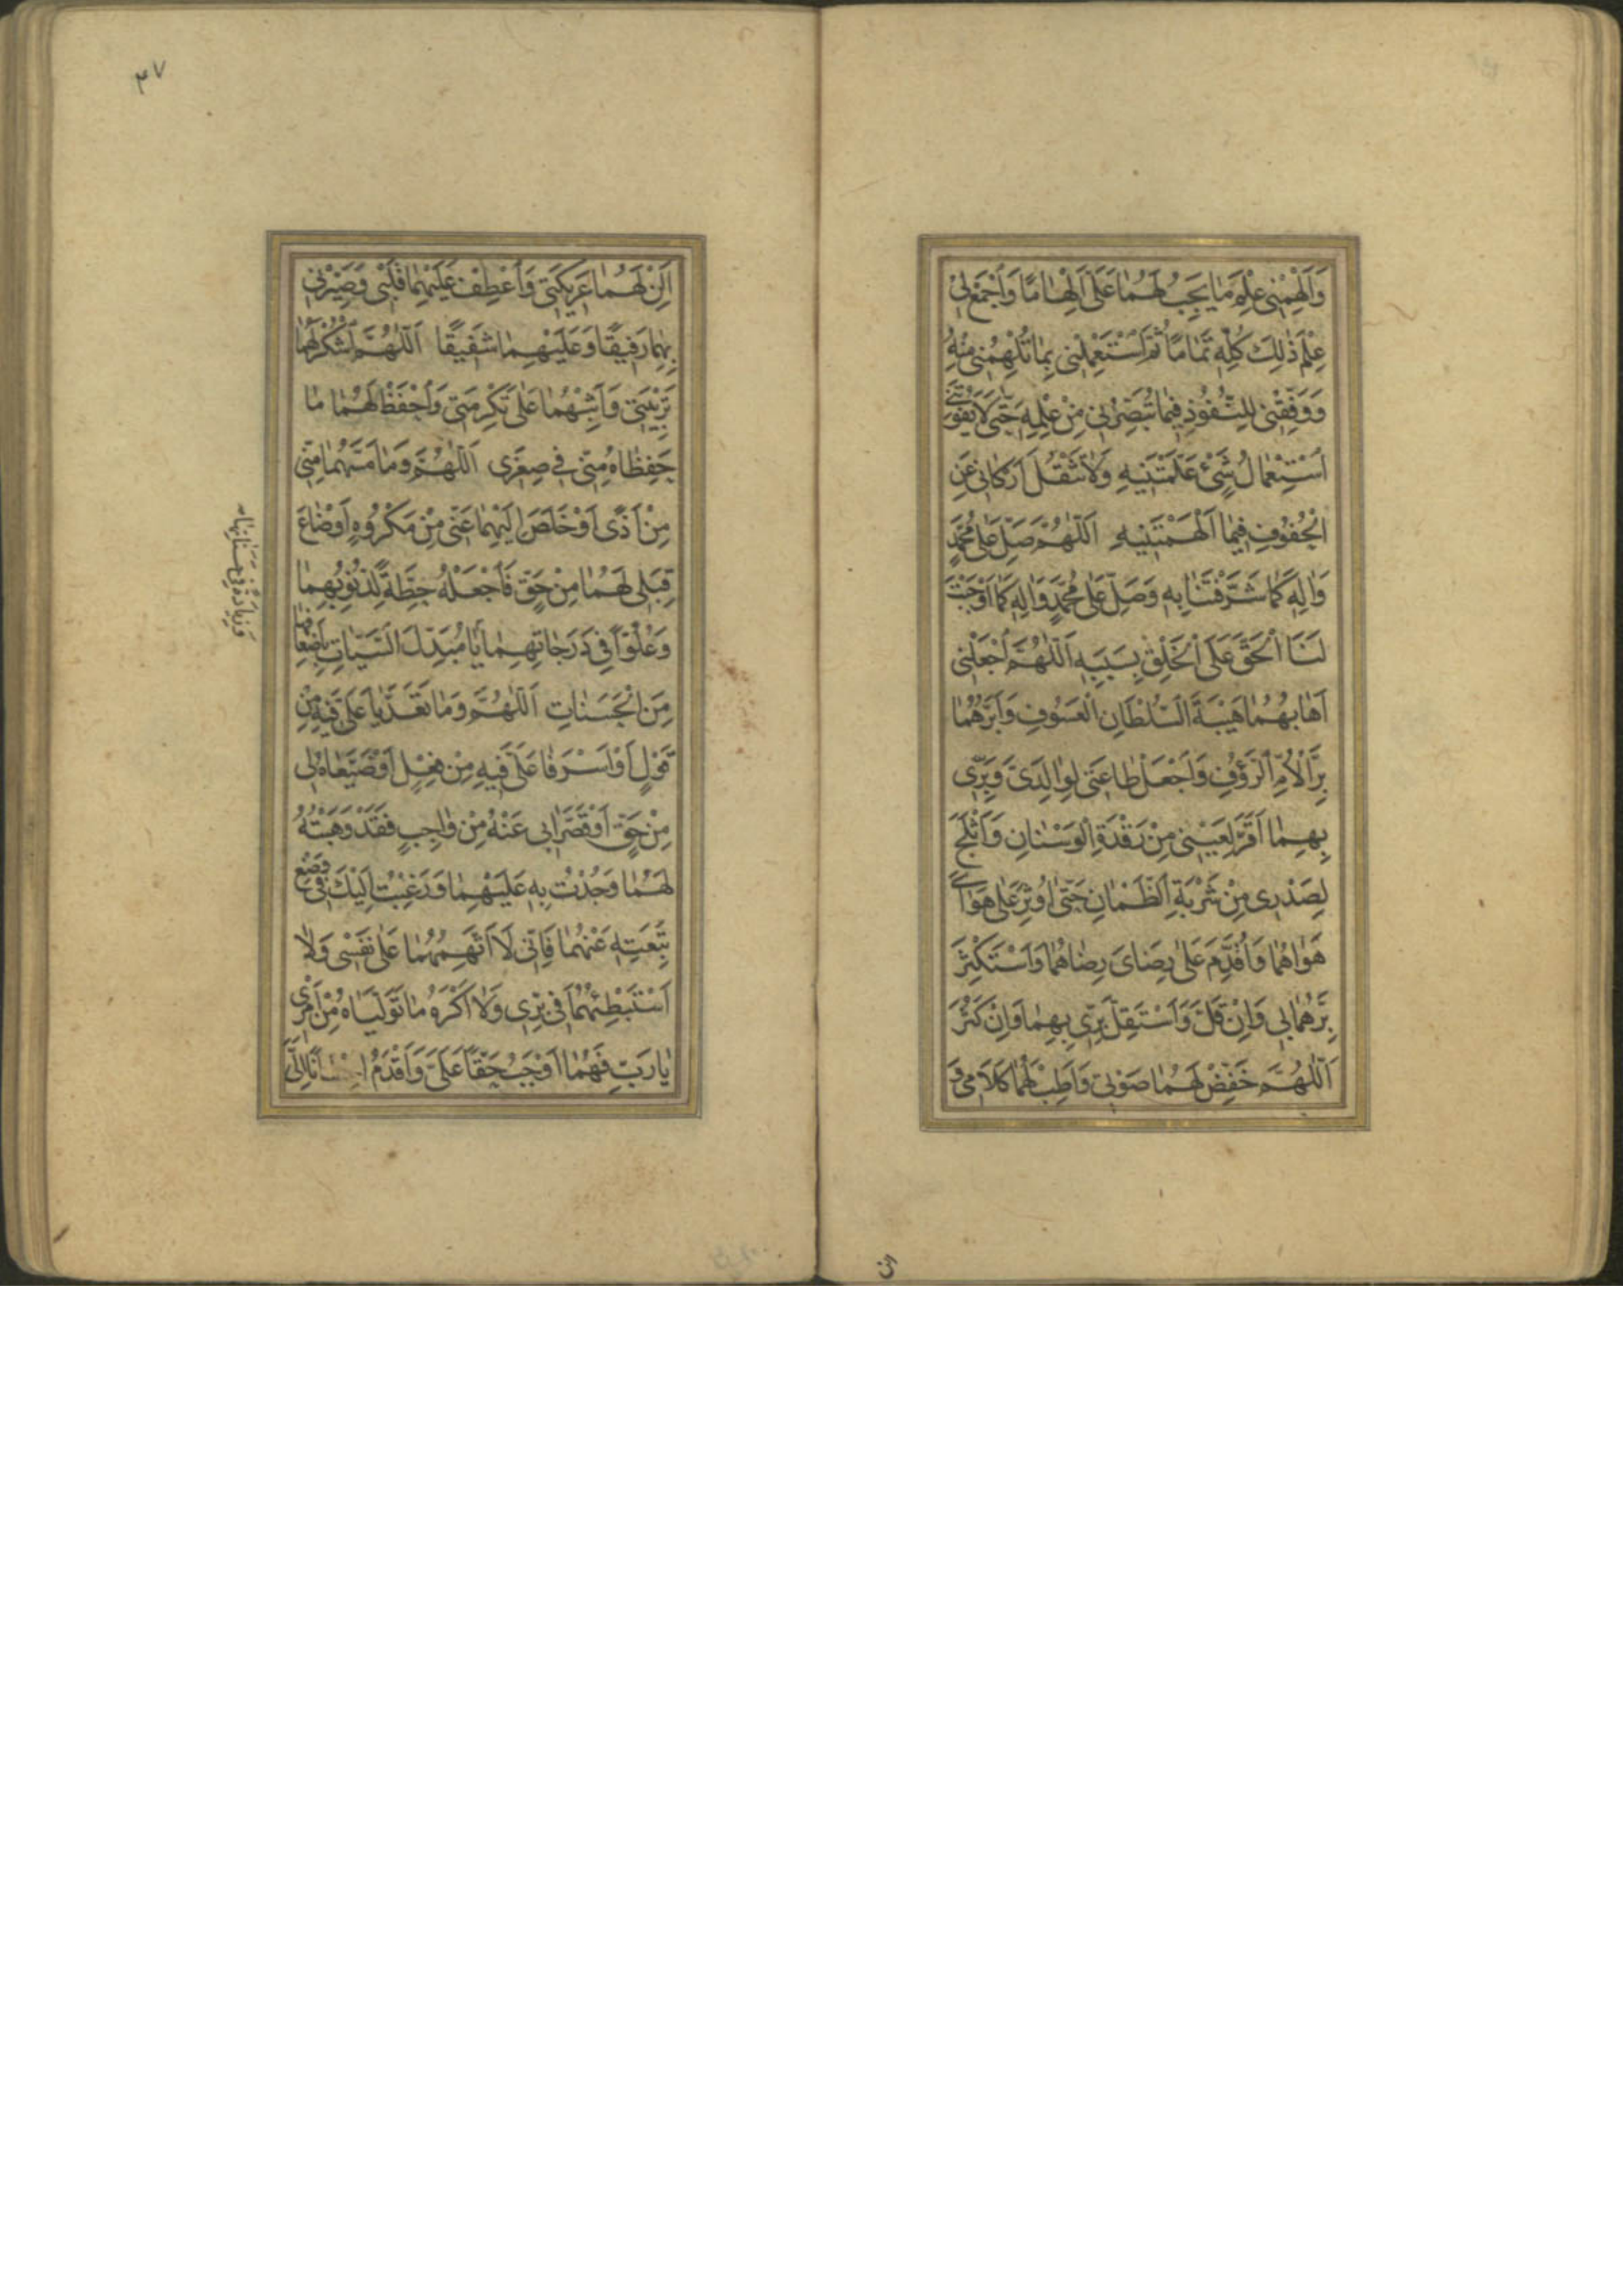 وَاَلْهِمْنى عِلْمَ مٰا يَجِبُ لَهُمٰا عَلَىَّ اِلْهٰامًا وَاَجْمَعْ لى
عِلْمَ ذٰلِكَ كُلِّهِ تَمٰامًا ثُمَّ اَسْتَعْمِلْنى بِمٰا تُلْهِمُنى مِنْهُ
وَوَفِّقْنى لِلنُّفُوذِ فِيمٰا تُبَصِّرُنى مِنْ عِلْمِهِ حَتّٰى لاٰ يَفُوتَنى
اَسْتِعْمٰالُ شَىْءٍ عَلَّمْتَنيهِ وَلاٰ تَثْقُلَ اَرْكٰانى عَنِ
الْحُفُوفِ فيمٰا اَلْهَمْتَنيهِ اَللّٰهُمَّ صَلِّ عَلٰى مُحَمَّدٍ
وَاٰلِهِ كَمٰا شَرَّفْتَنٰا بِهِ وَصَلِّ عَلٰى مُحَمَّدٍ وَاٰلِهِ كَمٰا اَوْجَبْتَ
لَنَا الْحَقَّ عَلَى الْخَلْقِ بِسَبَبِهِ اَللّٰهُمَّ اَجْعَلْنى
اَهٰابُهُمٰا هَيْبَةَ السُّلْطٰانِ الْعَسُوفِ وَاَبَرُّهُمٰا
بِرَّ الْاُمِّ الرَّؤُفِ وَاَجْعَلْ طٰاعَتى لِوٰالِدَىَّ وَبِرّى
بِهِمٰا اَقَرَّ لِعَيْنى مِنْ رَقْدَةِ الْوَسْنٰانِ وَاَثْلَجَ
لِصَدْرى مِنْ شَرْبَةِ الظَّمْاٰنِ حَتّٰى اُوثِرَ عَلٰى هَوٰاىَ
هَوٰاهُمٰا وَاُقَدِّمَ عَلٰى رِضٰاىَ رِضٰاهُمٰا وَاَسْتَكْثِرَ
بِرَّهُمٰا بى وَاِنْ قَلَّ وَاَسْتَقِلَّ بِرّى بِهِمٰا وَاِنْ كَثُرَ
اَللّٰهُمَّ خَفِّضْ لَهُمٰا صَوْتى وَاَطِبْ لَهُمٰا كَلاٰمى وَ
٤٧
اَلِنْ لَهُمٰا عَريكَتى وَاَعْطِفْ عَلَيْهِمٰا قَلْبى وَصَيِّرْنى
بِهِمٰا رَفيقًا وَعَلَيْهِمٰا شَفيقًا اَللّٰهُمَّ اَشْكُرْ لَهُمٰا
تَرْبِيَتى وَاَثِبْهُمٰا عَلٰى تَكْرِمَتى وَاَحْفَظْ لَهُمٰا مٰا
حَفِظٰاهُ مِنّى فى صِغَرى اَللّٰهُمَّ وَمٰا مَسَّهُمٰا مِنّى
مِنْ اَذًى اَوْ خَلَصَ اِلَيْهِمٰا عَنّى مِنْ مَكْرُوهٍ اَوْ ضٰاعَ
قِبَلى لَهُمٰا مِنْ حَقٍّ فَاَجْعَلْهُ حِطَّةً لِذُنُوبِهِمٰا
وَعُلُوًّا فى دَرَجٰاتِهِمٰا يٰا مُبَدِّلَ السَّيِّئٰاتِ بِاَضْعٰافِهٰا
مِنَ الْحَسَنٰاتِ اَللّٰهُمَّ وَمٰا تَعَدَّيٰا عَلَىَّ فيهِ مِنْ
قَوْلٍ اَوْ اَسْرَفٰا عَلَىَّ فيهِ مِنْ فِعْلٍ اَوْ ضَيَّعٰاهُ لى
مِنْ حَقٍّ اَوْ قَصَّرٰا بى عَنْهُ مِنْ وٰاجِبٍ فَقَدْ وَهَبْتُهُ
لَهُمٰا وَجُدْتُ بِهِ عَلَيْهِمٰا وَرَغِبْتُ اِلَيْكَ فى وَضْعِ
تَبِعَتِهِ عَنْهُمٰا فَاِنّى لَا اَتَّهِمُهُمٰا عَلٰى نَفْسى وَلاٰ
اَسْتَبْطِئُهُمٰا فى بِرّى وَلاٰ اَكْرَهُ مٰا تَوَلَّيٰاهُ مِنْ اَمْرى
يٰا رَبِّ فَهُمٰا اَوْجَبُ حَقًّا عَلَىَّ وَاَقْدَمُ اِحْسٰانًا اِلَىَّ
وَزِيٰادَةً فى حَسَنٰاتِهِمٰا